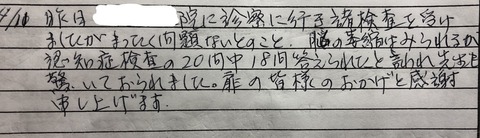 4/10 昨日 院に診察に行き諸検査を受け
ましたがまったく問題ないとのこと。脳の萎縮はみられるが
認知症検査の20問中18問答えられたと言われ先生も
驚いておられました。扉の皆様のおかげと感謝
申し上げます